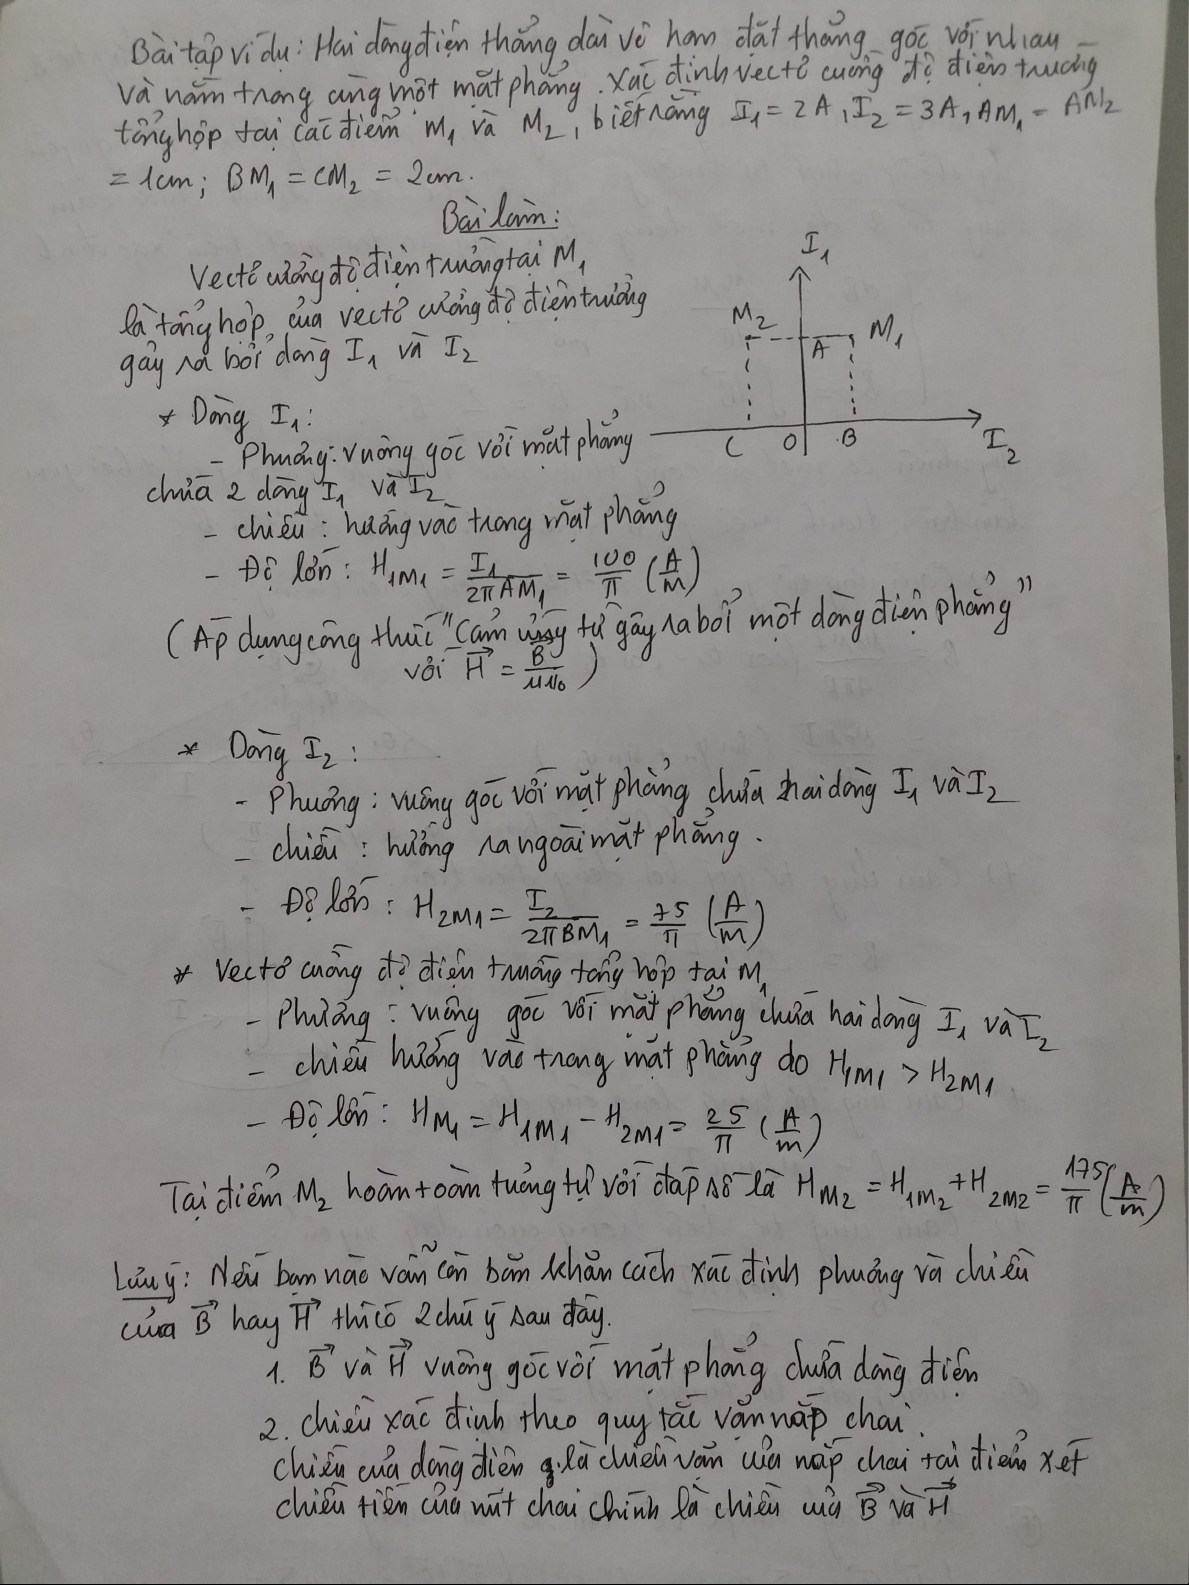 Bài tập ví dụ: Hai dòng điện thẳng dài vô hạn đặt thẳng góc với nhau
và nằm trong cùng một mặt phẳng. Xác định vectơ cường độ điện trường
tổng hợp tại các điểm M₁ và M₂, biết rằng I₁ = 2A, I₂ = 3A, AM₁ = AM₂
= 1cm; BM₁ = CM₂ = 2cm.
Bài làm:
Vectơ cường độ điện trường tại M₁
là tổng hợp của vectơ cường độ điện trường
gây ra bởi dòng I₁ và I₂
I₁
M₂
A
M₁
C
O
B
I₂
* Dòng I₁:
- Phương: vuông góc với mặt phẳng
chứa 2 dòng I₁ và I₂
- chiều: hướng vào trong mặt phẳng
- Độ lớn: H₁M₁ = I₁/(2πAM₁) = 100/π (A/m)
(Áp dụng công thức "Cảm ứng từ gây ra bởi một dòng điện phẳng"
với H⃗ = B⃗/(μμ₀))
* Dòng I₂:
- Phương: vuông góc với mặt phẳng chứa hai dòng I₁ và I₂
- chiều: hướng ra ngoài mặt phẳng.
- Độ lớn: H₂M₁ = I₂/(2πBM₁) = 75/π (A/m)
* Vectơ cường độ điện trường tổng hợp tại M₁
- Phương: vuông góc với mặt phẳng chứa hai dòng I₁ và I₂
- chiều hướng vào trong mặt phẳng do H₁M₁ > H₂M₁
- Độ lớn: HM₁ = H₁M₁ - H₂M₁ = 25/π (A/m)
Tại điểm M₂ hoàn toàn tương tự với đáp số là HM₂ = H₁M₂ + H₂M₂ = 175/π (A/m)
Lưu ý: Nếu bạn nào vẫn còn băn khăn cách xác định phương và chiều
của B⃗ hay H⃗ thì có 2 chú ý sau đây.
1. B⃗ và H⃗ vuông góc với mặt phẳng chứa dòng điện
2. Chiều xác định theo quy tắc vặn nắp chai.
chiều của dòng điện là chiều vặn của nắp chai tại điểm xét
chiều tiến của nút chai chính là chiều của B⃗ và H⃗